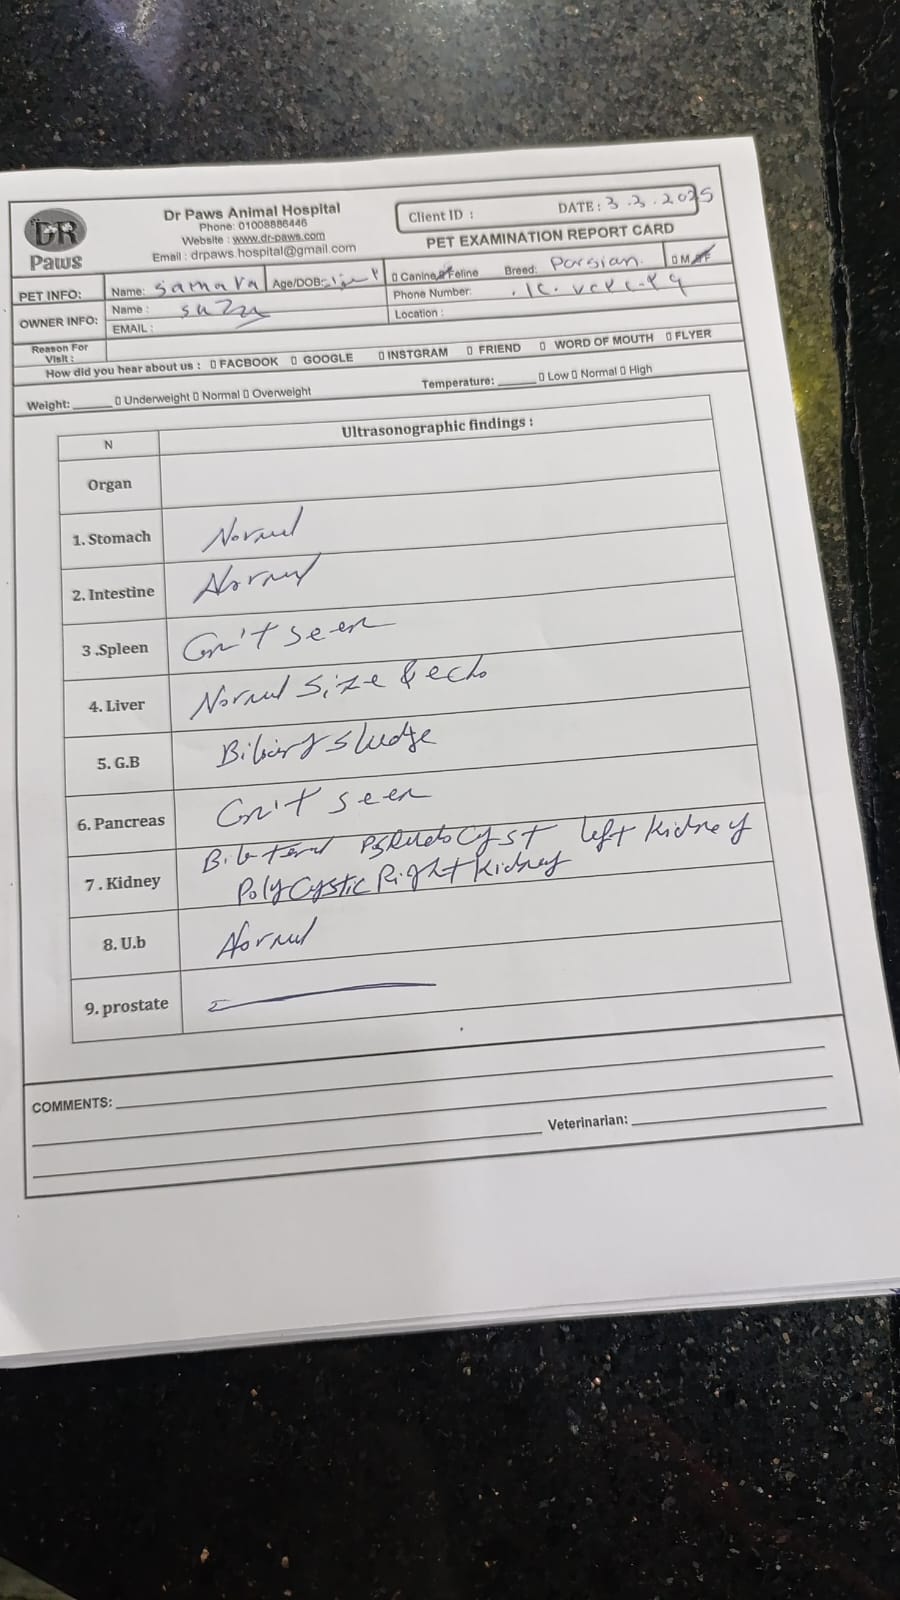 DR
Paws
Dr Paws Animal Hospital
Phone: 01008886446
Website : www.dr-paws.com
Email : drpaws.hospital@gmail.com
Client ID :
DATE : 3.3.2025
PET EXAMINATION REPORT CARD
PET INFO:
Name: samara
Age/DOB:
▯ Canine ▯ Feline
Breed: Parsian
▯ M ▯ F
OWNER INFO:
Name :
Phone Number:
EMAIL :
Location :
Reason For
Visit :
How did you hear about us : ▯ FACBOOK ▯ GOOGLE ▯ INSTGRAM ▯ FRIEND ▯ WORD OF MOUTH ▯ FLYER
Weight:______ ▯ Underweight ▯ Normal ▯ Overweight Temperature: ______ ▯ Low ▯ Normal ▯ High
N
Ultrasonographic findings :
Organ
1. Stomach Normal
2. Intestine Normal
3 .Spleen Can't seen
4. Liver Normal Size & echo
5. G.B Biliary sludge
6. Pancreas Can't seen
7 . Kidney Bilateral Pseudocyst left Kidney
Polycystic Right Kidney
8. U.b Normal
9. prostate
COMMENTS:
Veterinarian: